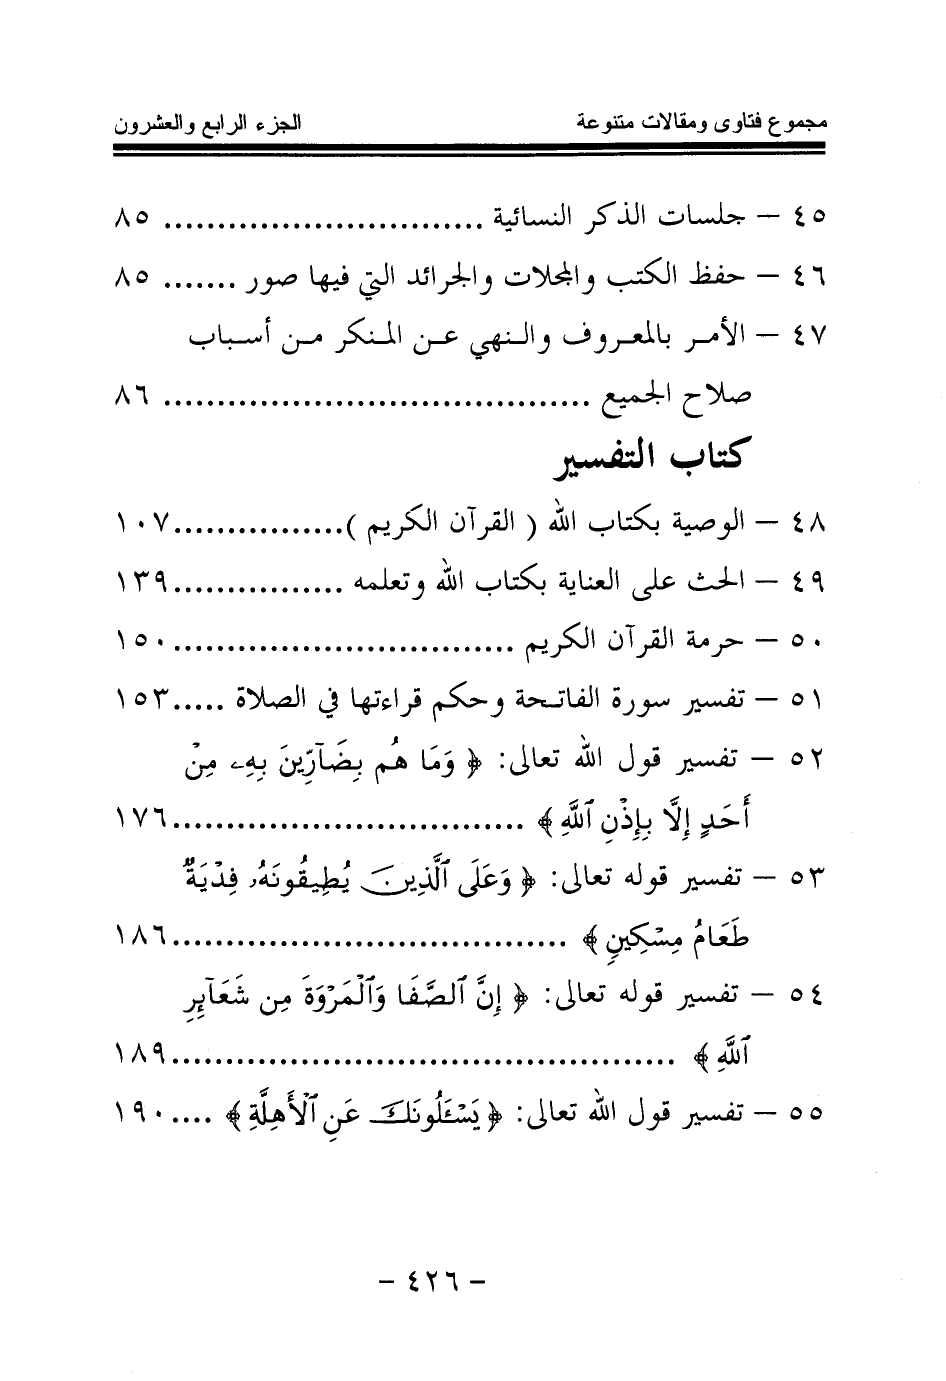 مجموع فتاوى ومقالات متنوعة الجزء الرابع والعشرون
٤٥ – جلسات الذكر النسائية .............................. ٨٥
٤٦ – حفظ الكتب والمجلات والجرائد التي فيها صور ....... ٨٥
٤٧ – الأمر بالمعروف والنهي عن المنكر من أسباب
صلاح الجميع ........................................ ٨٦
كتاب التفسير
٤٨ – الوصية بكتاب الله ( القرآن الكريم )................ ١٠٧
٤٩ – الحث على العناية بكتاب الله وتعلمه ................ ١٣٩
٥٠ – حرمة القرآن الكريم ................................ ١٥٠
٥١ – تفسير سورة الفاتحة وحكم قراءتها في الصلاة ..... ١٥٣
٥٢ – تفسير قول الله تعالى: ﴿ وَمَا هُم بِضَآرِّينَ بِهِۦ مِنْ
أَحَدٍ إِلَّا بِإِذْنِ ٱللَّهِ ﴾ ................................. ١٧٦
٥٣ – تفسير قوله تعالى: ﴿ وَعَلَى ٱلَّذِينَ يُطِيقُونَهُۥ فِدْيَةٌ
طَعَامُ مِسْكِينٍ ﴾ ..................................... ١٨٦
٥٤ – تفسير قوله تعالى: ﴿ إِنَّ ٱلصَّفَا وَٱلْمَرْوَةَ مِن شَعَآئِرِ
ٱللَّهِ ﴾ ............................................... ١٨٩
٥٥ – تفسير قول الله تعالى: ﴿ يَسْـَٔلُونَكَ عَنِ ٱلْأَهِلَّةِ ﴾ .... ١٩٠
– ٤٢٦ –